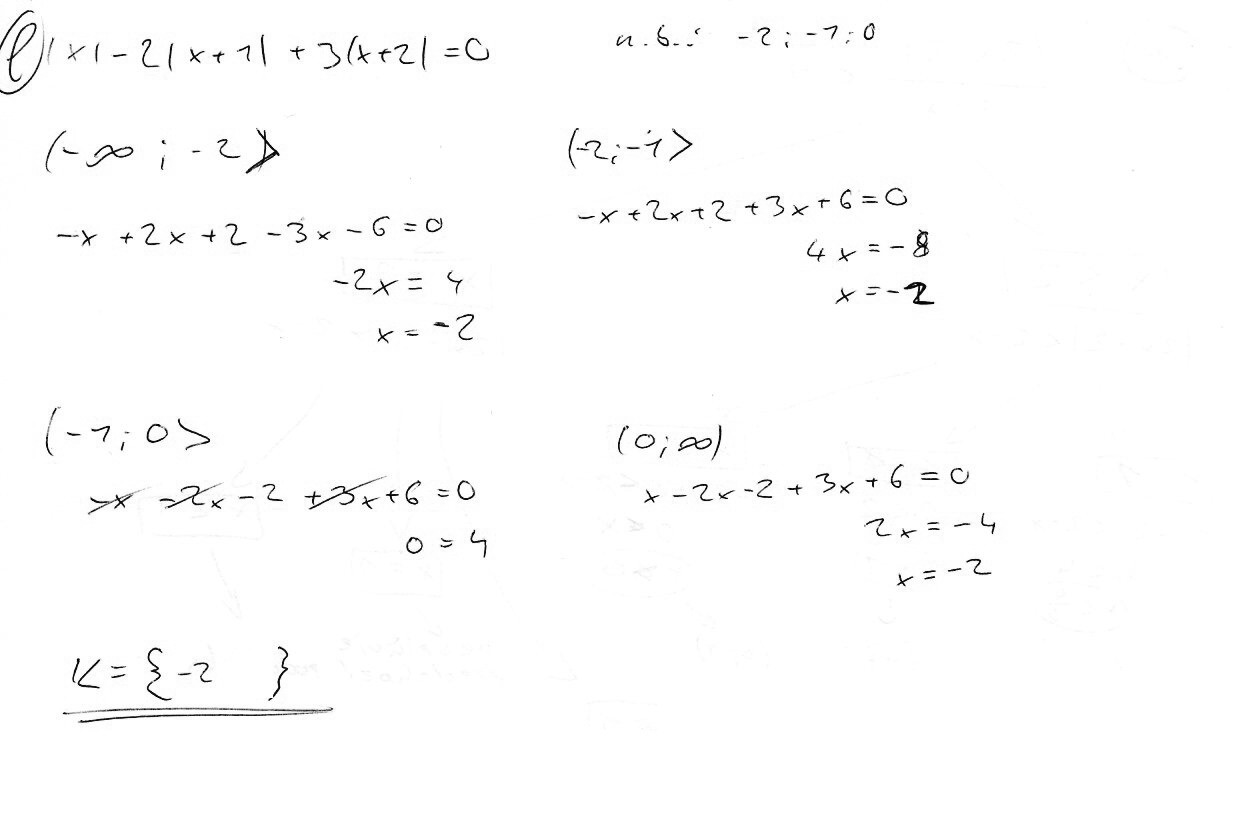 l) |x| - 2|x+1| + 3|x+2| = 0
n.b.: -2; -1; 0
(-∞; -2>
-x + 2x + 2 - 3x - 6 = 0
-2x = 4
x = -2
(-2; -1>
-x + 2x + 2 + 3x + 6 = 0
4x = -8
x = -2
(-1; 0>
-x - 2x - 2 + 3x + 6 = 0
0 = 4
(0; ∞)
x - 2x - 2 + 3x + 6 = 0
2x = -4
x = -2
K = {-2 }